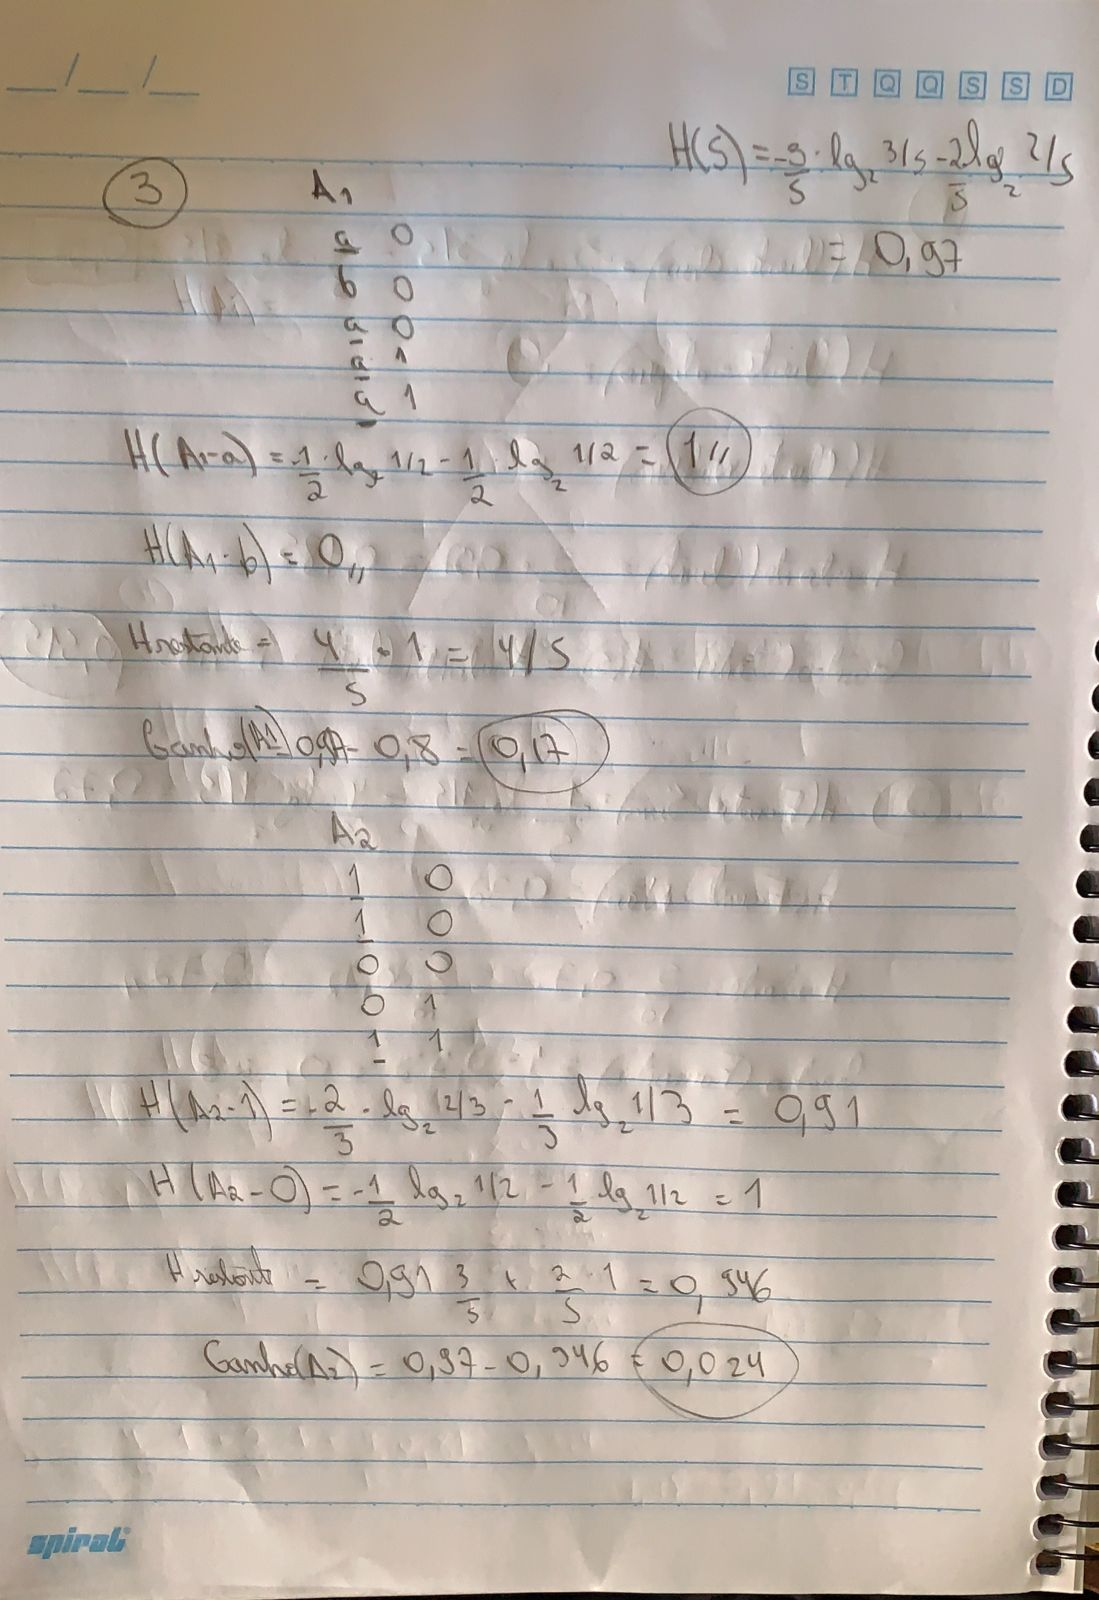 __/__/__
S T Q Q S S D
H(S) = -3/5 · lg₂ 3/5 - 2/5 lg₂ 2/5
= 0,97
3
A₁
a 0
b 0
a 0
a 1
a 1
H(A₁-a) = -1/2 · lg₂ 1/2 - 1/2 · lg₂ 1/2 = 1//
H(A₁-b) = 0//
Hrestante = 4/5 · 1 = 4/5
Ganho(A1) = 0,97 - 0,8 = 0,17
A₂
1 0
1 0
0 0
0 1
1 1
H(A₂-1) = -2/3 · lg₂ 2/3 - 1/3 lg₂ 1/3 = 0,91
H(A₂-0) = -1/2 lg₂ 1/2 - 1/2 lg₂ 1/2 = 1
Hrestante = 0,91 3/5 + 2/5 · 1 = 0,946
Ganho(A₂) = 0,97 - 0,946 = 0,024
spiral